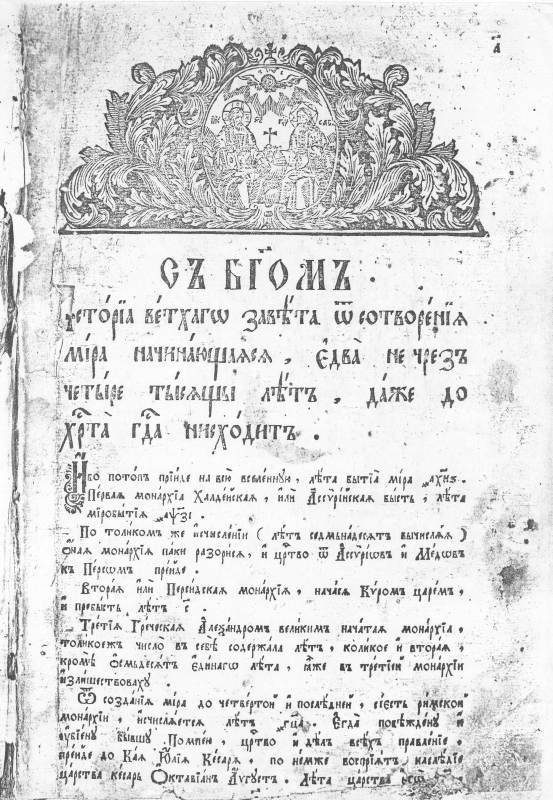 а҃
СЪ БГ҃ОМЪ .
Їсто́рїа ве́тхагѡ завѣ́та ѿ сотворе́нїѧ
мі́ра начина́ющаѧсѧ , є҆два̀ не чрезъ
четы́ре ты́сѧщы лѣ́тъ , да́же до
хр҃та̀ гд҇а нисхо́дитъ .
И҆бо пото́пъ прїи́де на всю̀ вселе́нную , лѣ́та бытїѧ̀ мі́ра
Пе́рваѧ мона́рхїа Халде́йскаѧ , и҆лѝ А҆ссѷрі́йскаѧ бы́сть , лѣ́та
міробытїѧ̀ ҂аѱз҃і .
По толи́комъ же и҆счисле́нїи ( лѣ́тъ седмьна́десѧтъ вычислѧ́ѧ )
ѻ҆́наѧ мона́рхїа па́ки разори́сѧ , и҆ цр҇тво ѿ А҆ссѷрі́ѡвъ и҆ Ме́дѡвъ
къ Пе́рсомъ прїи́де .
Втора́ѧ и҆лѝ Персі́дскаѧ мона́рхїѧ , нача́сѧ Кѵ́ромъ царе́мъ ,
и҆ пребы́ть лѣ́тъ с҃ .
Тре́тїѧ Гре́ческаѧ А҆леѯа́ндромъ вели́кимъ нача́таѧ мона́рхїа ,
толи́коежъ число̀ въ себѣ̀ содержа́ла лѣ́тъ , коли́кое и҆ втора́ѧ ,
кромѣ̀ ѻ҆семьдесѧ́тъ є҆ди́нагѡ лѣ́та , ꙗ҆̀же въ тре́тїей мона́рхїи
и҆зли́шествоваху .
Ѿ созда́нїѧ мі́ра до четве́ртой и҆ послѣ́дней , сїе́сть ри́мской
мона́рхїи , и҆счислѧ́етсѧ лѣ́тъ ҂гц҃а . Є҆гда̀ побѣжде́ну и҆
ᲂу҆бїе́ну бы́вшу Помпе́ю , цр҇тво и҆ дѣ́лъ всѣ́хъ правле́нїе ,
прїи́де до Ка́ѧ Ю҆лїа Ке́сарѧ , по не́мже воспрїѧ́тъ наслѣ́дїе
ца́рства ке́сарь Ѻ҆ктавїа́нъ А҆́вгустъ . Лѣ́та ца́рства